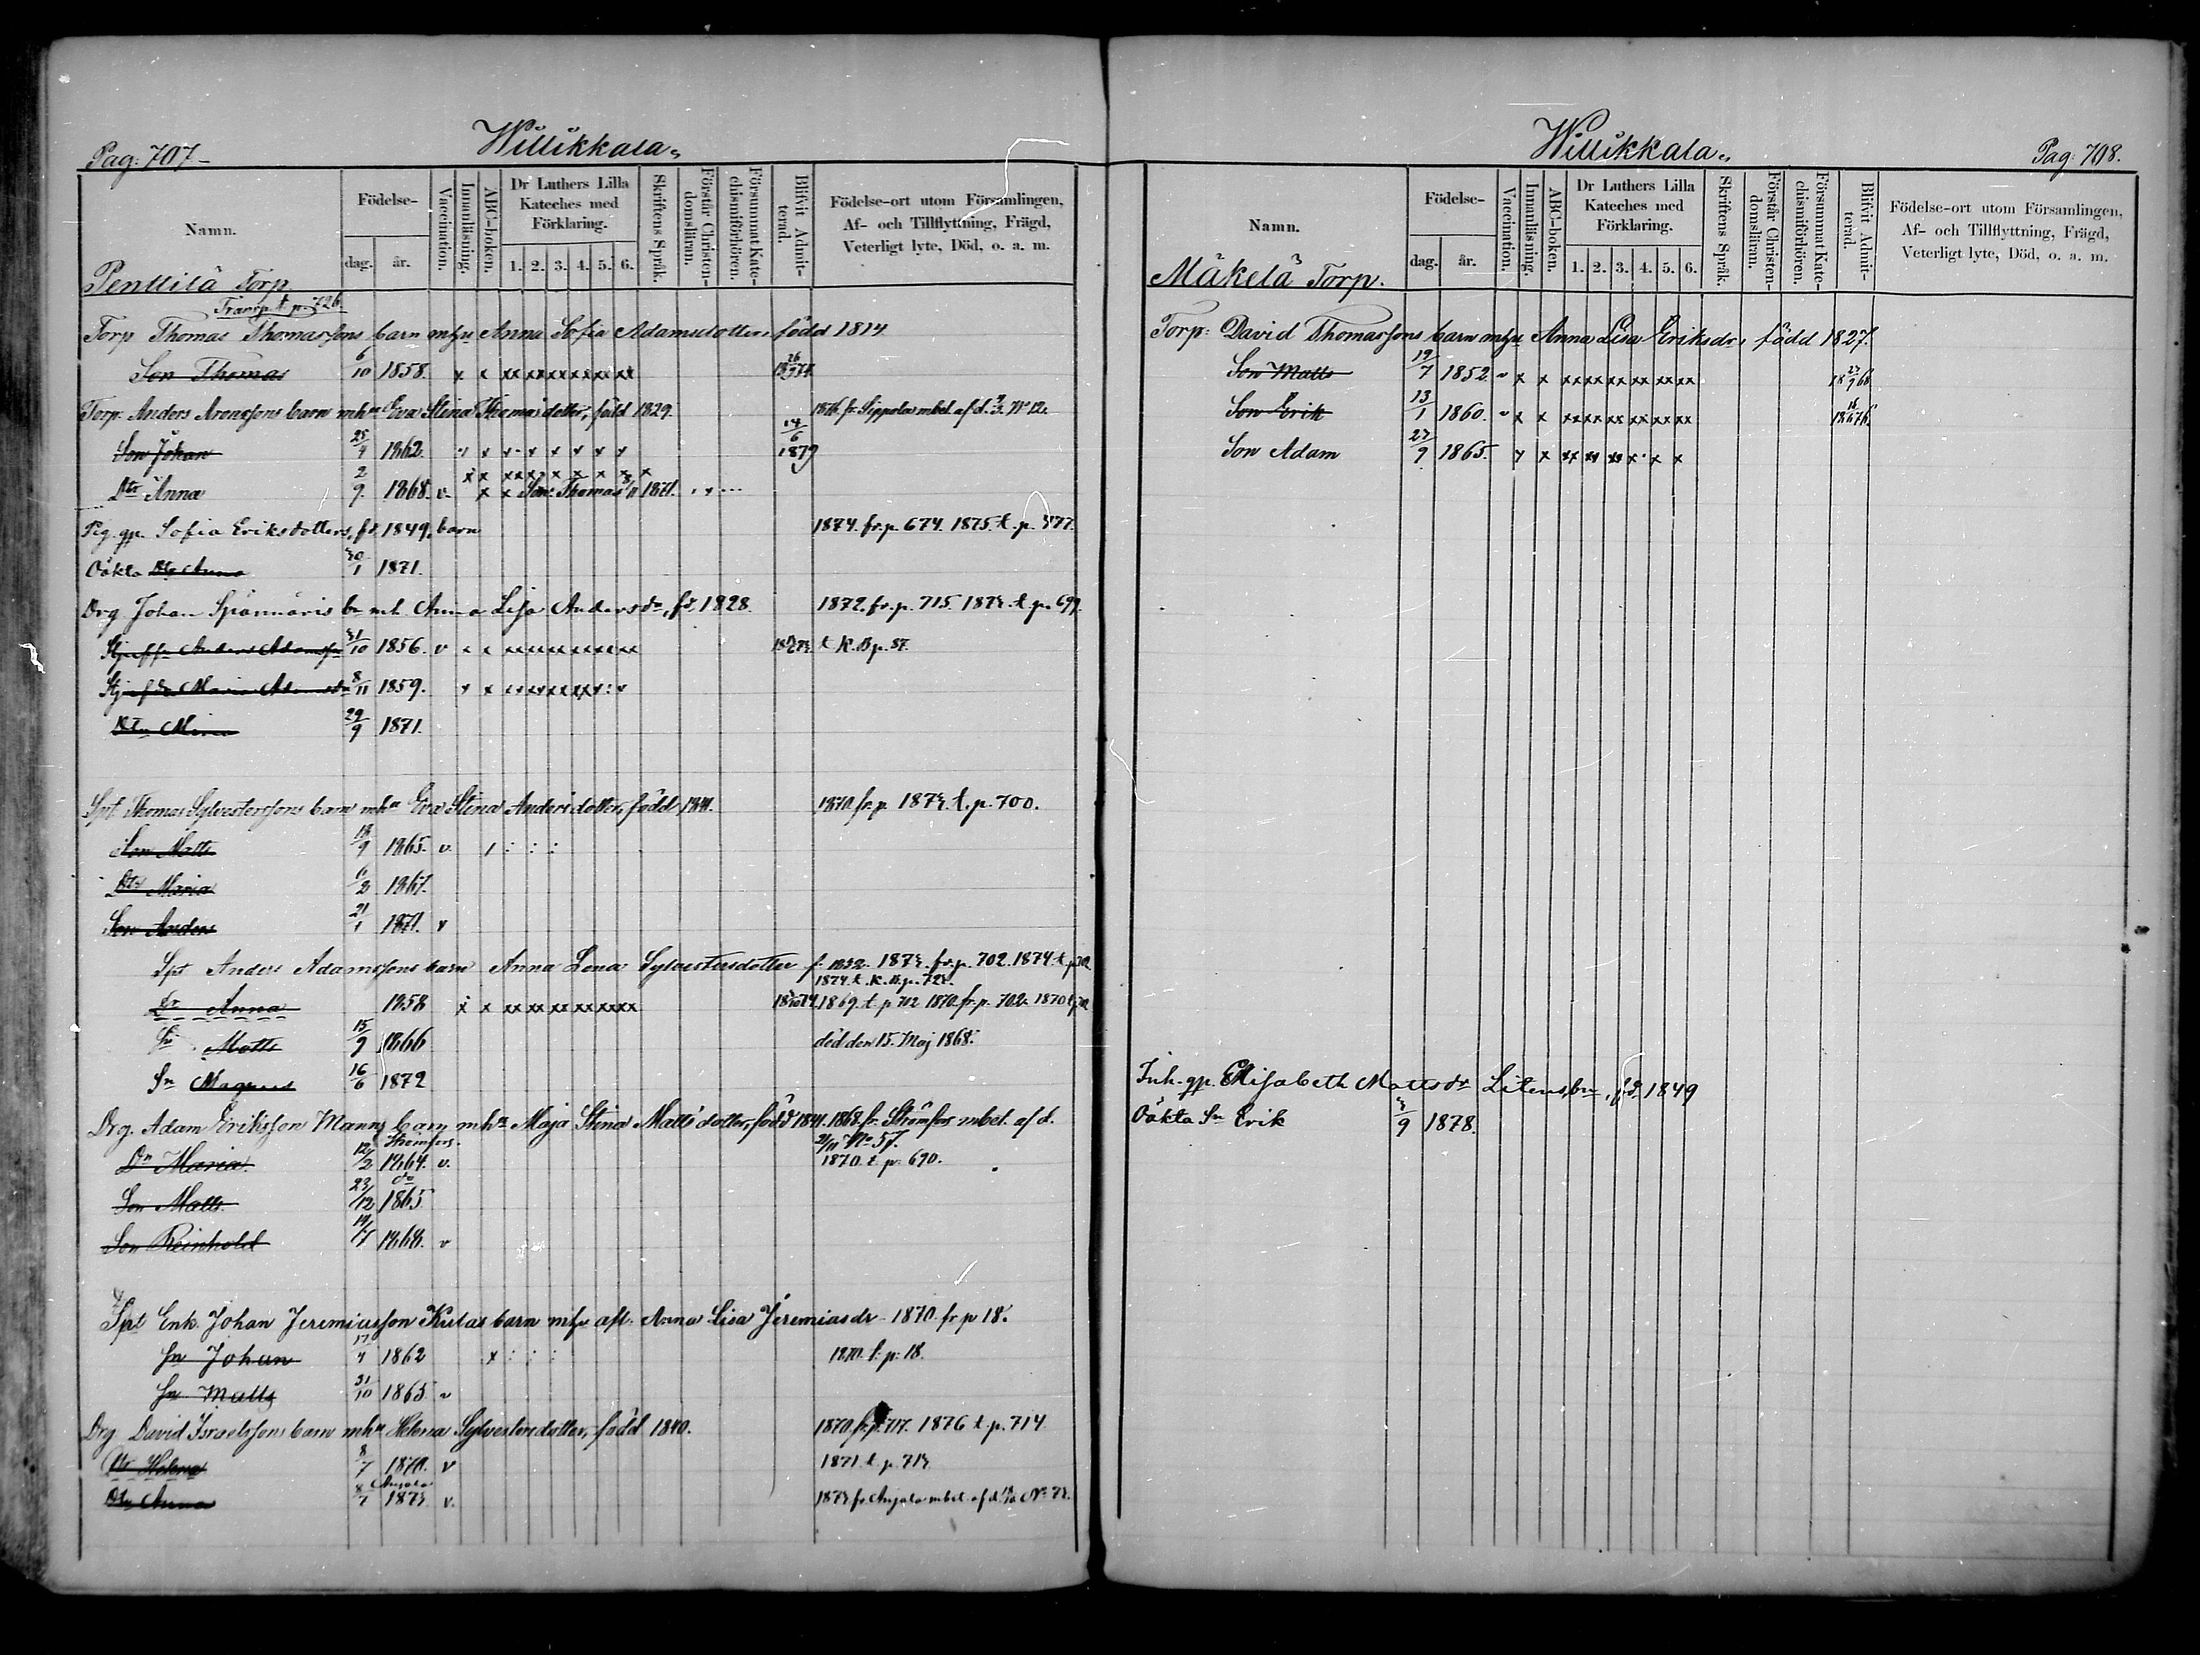 Pag: 707
Willikkala
Namn.
Födelse-
dag.
år.
Vaccination.
Innanläsning.
ABC-boken.
Dr Luthers Lilla
Kateches med
Förklaring.
1. 2. 3. 4. 5. 6.
Skriftens Språk.
Förstår Christen-
domsläran.
Försummat Kate-
chismiförhören.
Blifvit Admit-
terad.
Födelse-ort utom Församlingen,
Af- och Tillflyttning, Frägd,
Veterligt lyte, Död, o. a. m.
Penttilä Torp
Transp. t. p. 726.
Torp Thomas Thomassons barn mhu Anna Sofia Adamsdotter, född 1814
Son Thomas 6/10 1858.
Torp. Anders Aronssons barn mhu Eva Stina Thomasdotter, född 1829. 1876. fr. Sippola mbet. af d. No 12.
Son Johan 25/4 1862. 14/6 1879
Dtr Anna 2/9 1868. v. Son Thomas 1871.
Pig. gp. Sofia Eriksdotters, fd. 1849, barn 1874. fr. p. 674. 1875. t. p. 577.
Oäkta Dtr Anna 30/1 1871.
Drg Johan Spännäris bn mh. Anna Lisa Andersdr, fd. 1828. 1872. fr. p. 715. 1873. t. p. 699.
Stjufsn Anders Adamssn 31/10 1856. v t K. B p. 57.
Stjufdr Maria Adamsdr 8/11 1859.
Dtr Maria 29/9 1871.
Spt Thomas Sylvesterssons barn mhu Eva Stina Andersdotter, född 1841. 1870. fr. p. 1873. t. p. 700.
Son Matts 18/9 1865. v.
Dtr Maria 6/2 1867.
Son Anders 21/1 1871. v
Spt Anders Adamssons barn Anna Lena Sylvestersdotter f. 1832. 1873. fr. p. 702. 1874. t. p. 702
1874 t. K. B. p. 723.
Dr Anna 1858 1869. t. p 702 1870. fr. p. 702. 1870 t p. 702
Sn Matts 15/9 1866 död den 15. Maj 1868.
Sn Magnus 16/6 1872
Drg. Adam Eriksson Manns barn mhu Maja Stina Mattsdotter, född 1841. 1868. fr. Strömfors mbet. af d.
21/11 No 57.
Strömfors.
Dr Maria 12/2 1864. v. 1870. t p. 690.
do
Son Matts 23/12 1865.
Son Reinhold 14/7 1868. v
Spt Enk. Johan Jeremiasson Kutas barn mhu afl. Anna Lisa Jeremiasdr 1870. fr p 18.
Sn Johan 17/4 1862 1870. f. p. 18.
Sn Matts 31/10 1865 v
Drg. David Israelssons barn mhu Helena Sylvestersdotter, född 1840. 1870. fr. p. 717. 1876 t. p. 714
Dtr Helena 8/7 1870. v 1871. t p. 713
Anjala
Dtr Anna 8/7 1873. v. 1873 fr. Anjala mbet. af d. No 73.
Willikkala
Pag: 708.
Namn.
Födelse-
dag.
år.
Vaccination.
Innanläsning.
ABC-boken.
Dr Luthers Lilla
Kateches med
Förklaring.
1. 2. 3. 4. 5. 6.
Skriftens Språk.
Förstår Christen-
domsläran.
Försummat Kate-
chismiförhören.
Blifvit Admit-
terad.
Födelse-ort utom Församlingen,
Af- och Tillflyttning, Frägd,
Veterligt lyte, Död, o. a. m.
Mäkelä Torp.
Torp: David Thomassons barn mhu Anna Lisa Eriksdr, född 1827.
Son Matts 19/7 1852. v
Son Erik 13/1 1860. v
Son Adam 27/9 1865.
Inh. gp. Elisabeth Mattsdr Litens bn, fd. 1849
Oäkta Sn Erik 3/9 1878.